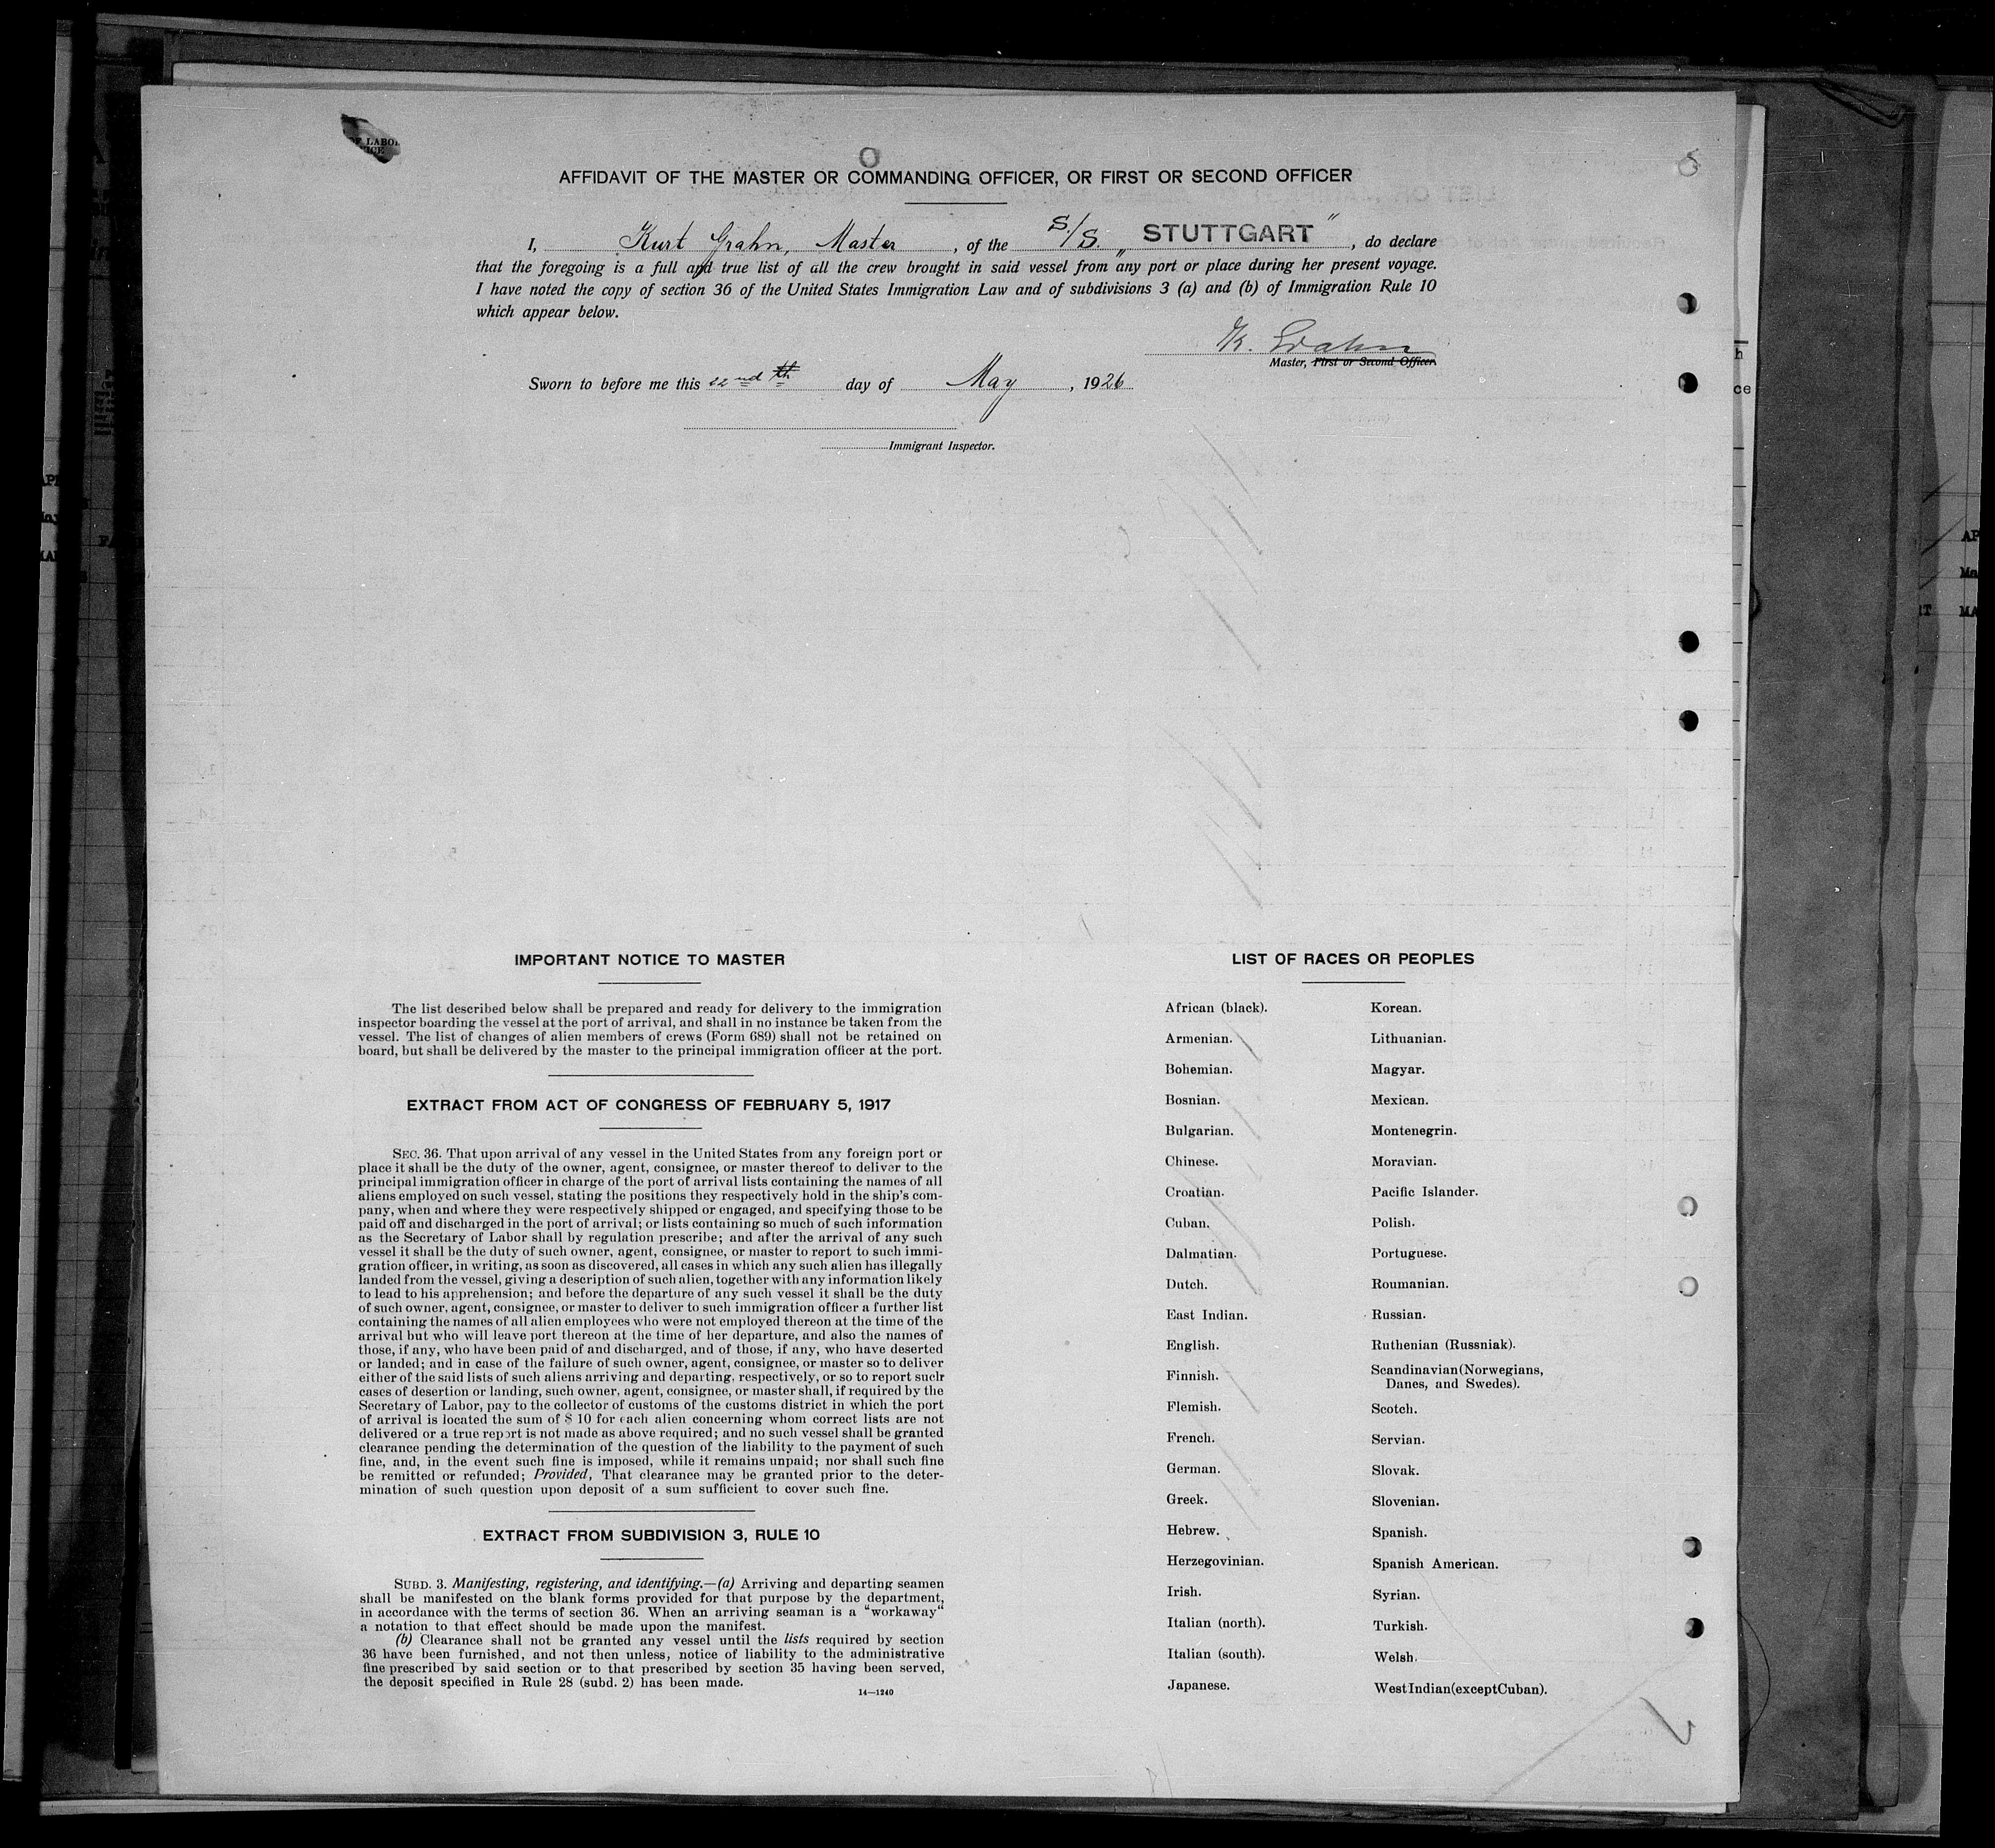 F LABOR
ICE
AFFIDAVIT OF THE MASTER OR COMMANDING OFFICER, OR FIRST OR SECOND OFFICER
I, Kurt Grahn, Master, of the S/S. „STUTTGART", do declare
that the foregoing is a full and true list of all the crew brought in said vessel from any port or place during her present voyage.
I have noted the copy of section 36 of the United States Immigration Law and of subdivisions 3 (a) and (b) of Immigration Rule 10
which appear below.
K. Grahn
Master, First or Second Officer.
Sworn to before me this 22nd th day of May, 1926
Immigrant Inspector.
IMPORTANT NOTICE TO MASTER
The list described below shall be prepared and ready for delivery to the immigration
inspector boarding the vessel at the port of arrival, and shall in no instance be taken from the
vessel. The list of changes of alien members of crews (Form 689) shall not be retained on
board, but shall be delivered by the master to the principal immigration officer at the port.
EXTRACT FROM ACT OF CONGRESS OF FEBRUARY 5, 1917
SEC. 36. That upon arrival of any vessel in the United States from any foreign port or
place it shall be the duty of the owner, agent, consignee, or master thereof to deliver to the
principal immigration officer in charge of the port of arrival lists containing the names of all
aliens employed on such vessel, stating the positions they respectively hold in the ship's com-
pany, when and where they were respectively shipped or engaged, and specifying those to be
paid off and discharged in the port of arrival; or lists containing so much of such information
as the Secretary of Labor shall by regulation prescribe; and after the arrival of any such
vessel it shall be the duty of such owner, agent, consignee, or master to report to such immi-
gration officer, in writing, as soon as discovered, all cases in which any such alien has illegally
landed from the vessel, giving a description of such alien, together with any information likely
to lead to his apprehension; and before the departure of any such vessel it shall be the duty
of such owner, agent, consignee, or master to deliver to such immigration officer a further list
containing the names of all alien employees who were not employed thereon at the time of the
arrival but who will leave port thereon at the time of her departure, and also the names of
those, if any, who have been paid of and discharged, and of those, if any, who have deserted
or landed; and in case of the failure of such owner, agent, consignee, or master so to deliver
either of the said lists of such aliens arriving and departing, respectively, or so to report such
cases of desertion or landing, such owner, agent, consignee, or master shall, if required by the
Secretary of Labor, pay to the collector of customs of the customs district in which the port
of arrival is located the sum of $ 10 for each alien concerning whom correct lists are not
delivered or a true report is not made as above required; and no such vessel shall be granted
clearance pending the determination of the question of the liability to the payment of such
fine, and, in the event such fine is imposed, while it remains unpaid; nor shall such fine
be remitted or refunded; Provided, That clearance may be granted prior to the deter-
mination of such question upon deposit of a sum sufficient to cover such fine.
EXTRACT FROM SUBDIVISION 3, RULE 10
SUBD. 3. Manifesting, registering, and identifying.—(a) Arriving and departing seamen
shall be manifested on the blank forms provided for that purpose by the department,
in accordance with the terms of section 36. When an arriving seaman is a "workaway"
a notation to that effect should be made upon the manifest.
(b) Clearance shall not be granted any vessel until the lists required by section
36 have been furnished, and not then unless, notice of liability to the administrative
fine prescribed by said section or to that prescribed by section 35 having been served,
the deposit specified in Rule 28 (subd. 2) has been made.
14—1240
LIST OF RACES OR PEOPLES
African (black).
Armenian.
Bohemian.
Bosnian.
Bulgarian.
Chinese.
Croatian.
Cuban.
Dalmatian.
Dutch.
East Indian.
English.
Finnish.
Flemish.
French.
German.
Greek.
Hebrew.
Herzegovinian.
Irish.
Italian (north).
Italian (south).
Japanese.
Korean.
Lithuanian.
Magyar.
Mexican.
Montenegrin.
Moravian.
Pacific Islander.
Polish.
Portuguese.
Roumanian.
Russian.
Ruthenian (Russniak).
Scandinavian (Norwegians,
Danes, and Swedes).
Scotch.
Servian.
Slovak.
Slovenian.
Spanish.
Spanish American.
Syrian.
Turkish.
Welsh.
West Indian (except Cuban).